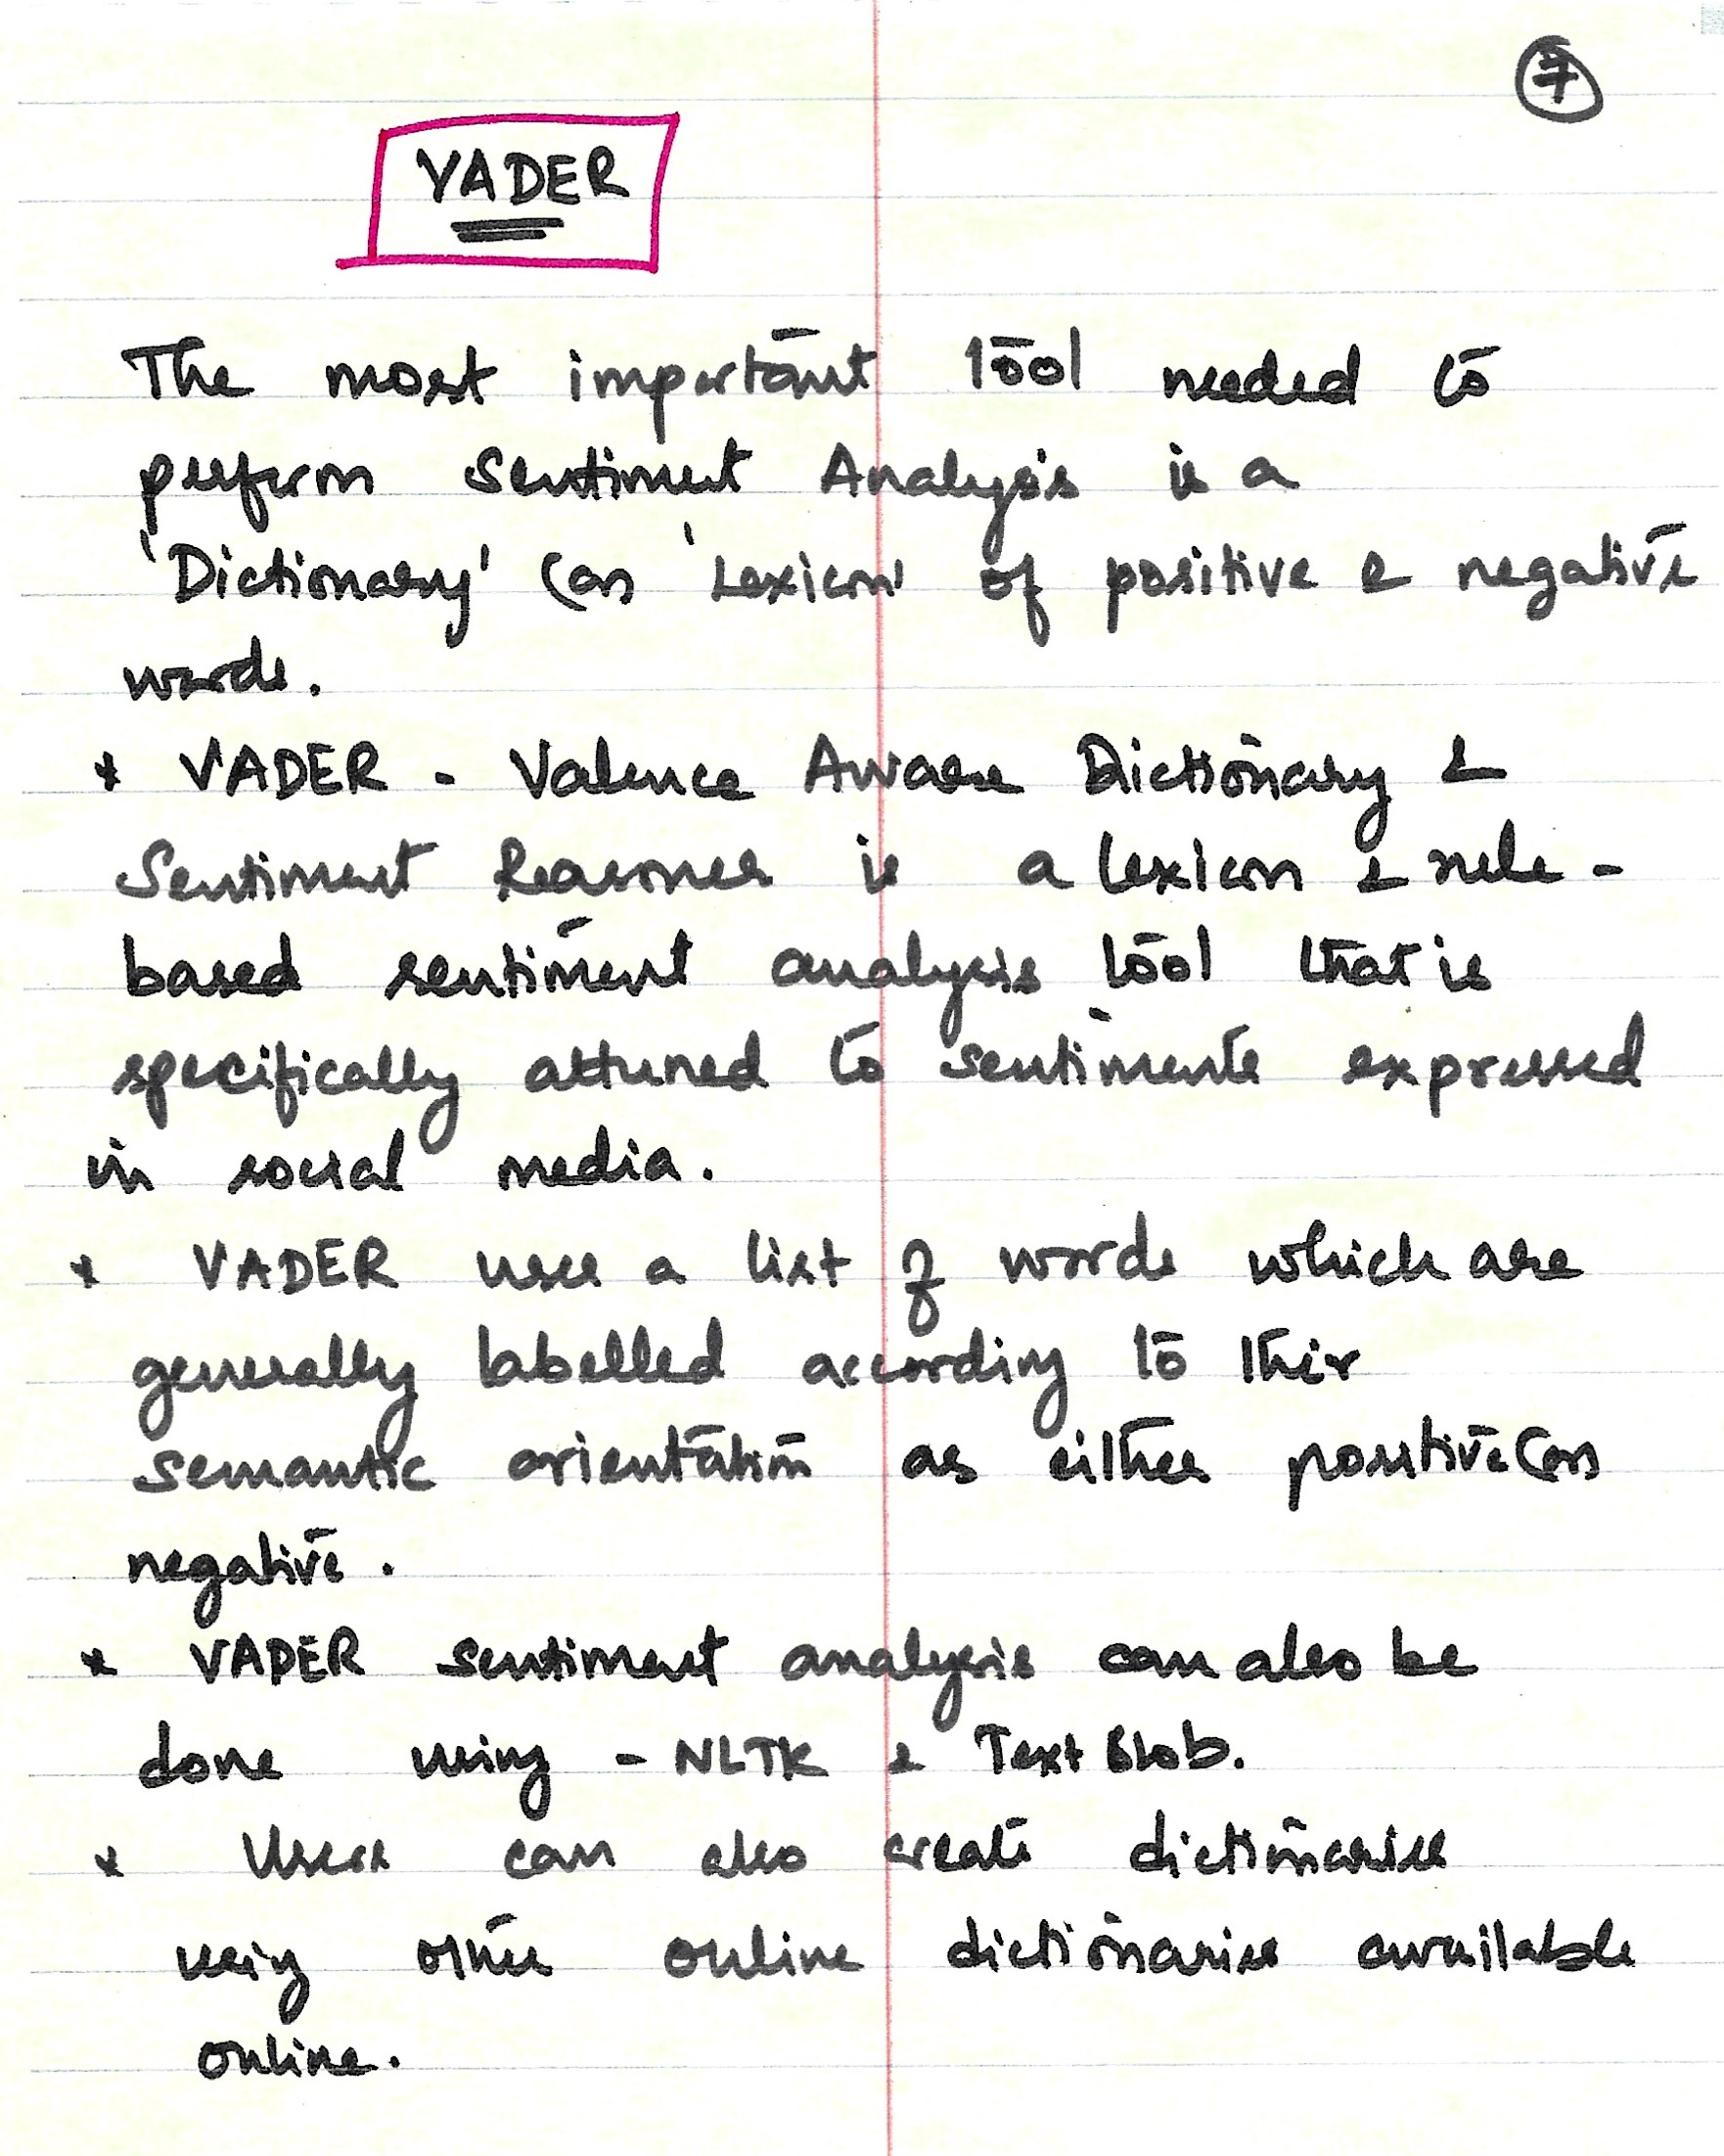 7
VADER
The most important tool needed to
perform Sentiment Analysis is a
'Dictionary' (or) 'Lexicon' of positive & negative
words.
* VADER - Valence Aware Dictionary &
Sentiment Reasoner is a lexicon & rule-
based sentiment analysis tool that is
specifically attuned to sentiments expressed
in social media.
* VADER uses a list of words which are
generally labelled according to their
semantic orientation as either positive (or)
negative.
* VADER sentiment analysis can also be
done using - NLTK & Text Blob.
* Users can also create dictionaries
using other online dictionaries available
online.